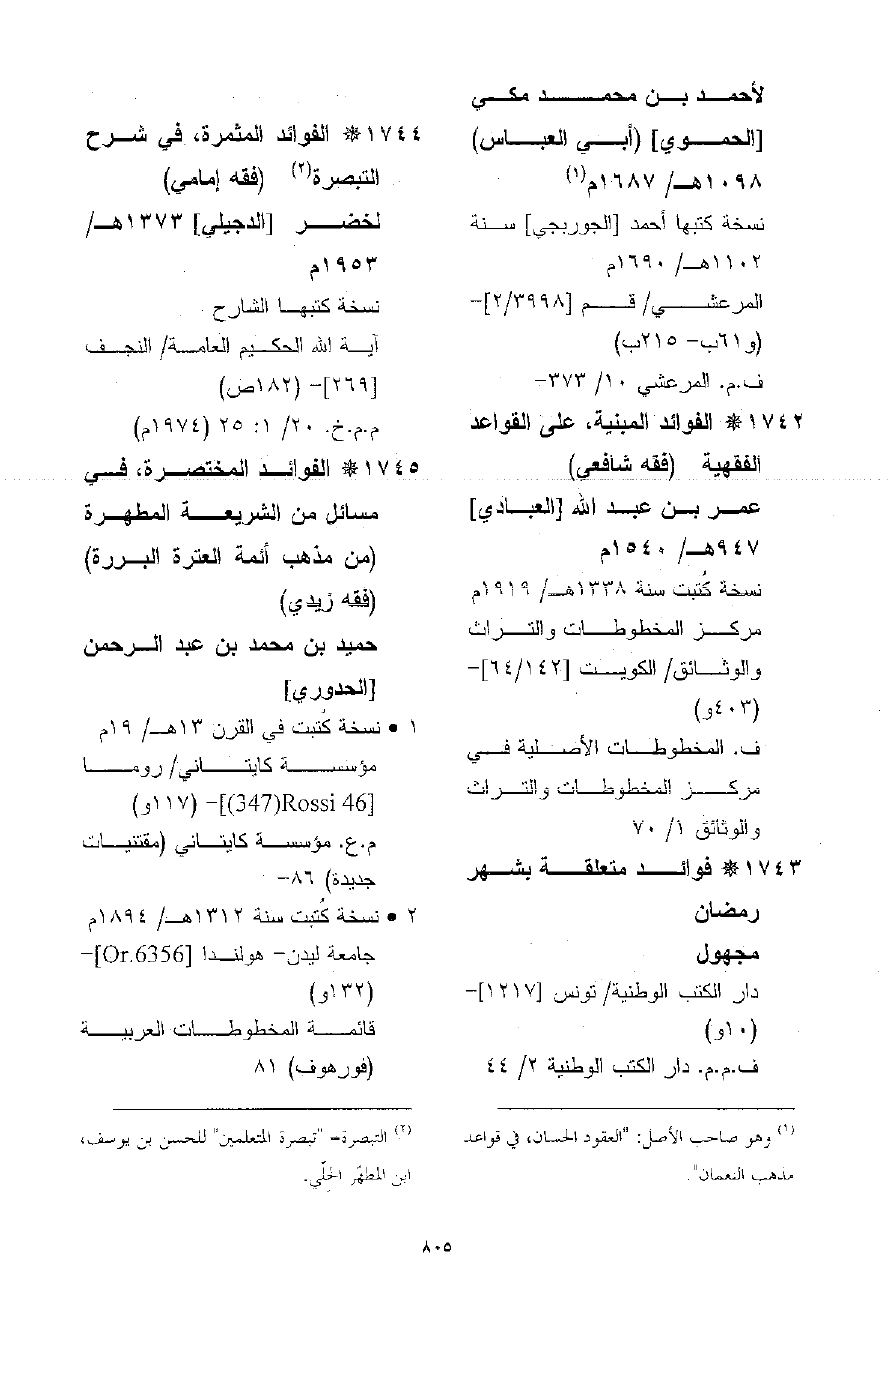 لأحمد بن محمد مكي
[الحموي] (أبي العباس)
١٠٩٨هـ/ ١٦٨٧م(١)
نسخة كتبها أحمد [الجوربجي] سنة
١١٠٢هـ/ ١٦٩٠م
المرعشي/ قم [٢/٣٩٩٨]-
(و٦١ب- ٢١٥ب)
ف.م. المرعشي ١٠/ ٣٧٣-
١٧٤٢ * الفوائد المبنية، على القواعد
الفقهية (فقه شافعي)
عمر بن عبد الله [العبادي]
٩٤٧هـ/ ١٥٤٠م
نسخة كُتبت سنة ١٣٣٨هـ/ ١٩١٩م
مركز المخطوطات والتراث
والوثائق/ الكويت [٦٤/١٤٢]-
(٤٠٣و)
ف. المخطوطات الأصلية في
مركز المخطوطات والتراث
والوثائق ١/ ٧٠
١٧٤٣ * فوائد متعلقة بشهر
رمضان
مجهول
دار الكتب الوطنية/ تونس [١٢١٧]-
(١٠و)
ف.م.م. دار الكتب الوطنية ٢/ ٤٤
(١) وهو صاحب الأصل: "العقود الحسان، في قواعد
مذهب النعمان".
١٧٤٤ * الفوائد المثمرة، في شرح
التبصرة(٢) (فقه إمامي)
لخضر [الدجيلي] ١٣٧٣هـ/
١٩٥٣م
نسخة كتبها الشارح
آية الله الحكيم العامة/ النجف
[٢٦٩]- (١٨٢ص)
م.م.خ. ٢٠/ ١: ٢٥ (١٩٧٤م)
١٧٤٥ * الفوائد المختصرة، في
مسائل من الشريعة المطهرة
(من مذهب أئمة العترة البررة)
(فقه زيدي)
حميد بن محمد بن عبد الرحمن
[الحدوري]
١ • نسخة كُتبت في القرن ١٣هـ/ ١٩م
مؤسسة كايتاني/ روما
[Rossi 46(347)]- (١١٧و)
م.ع. مؤسسة كايتاني (مقتنيات
جديدة) ٨٦-
٢ • نسخة كُتبت سنة ١٣١٢هـ/ ١٨٩٤م
جامعة ليدن- هولندا [Or.6356]-
(١٣٢و)
قائمة المخطوطات العربية
(فورهوف) ٨١
(٢) التبصرة= "تبصرة المتعلمين" للحسن بن يوسف،
ابن المطهّر الحِلّي.
٨٠٥